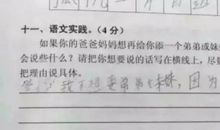 十一、语文实践。(4分)
如果你的爸爸妈妈想再给你添一个弟弟或妹
会说些什么？请把你想要说的话写在横线上，尽
把理由说具体。
我不想要弟弟或妹妹，因为